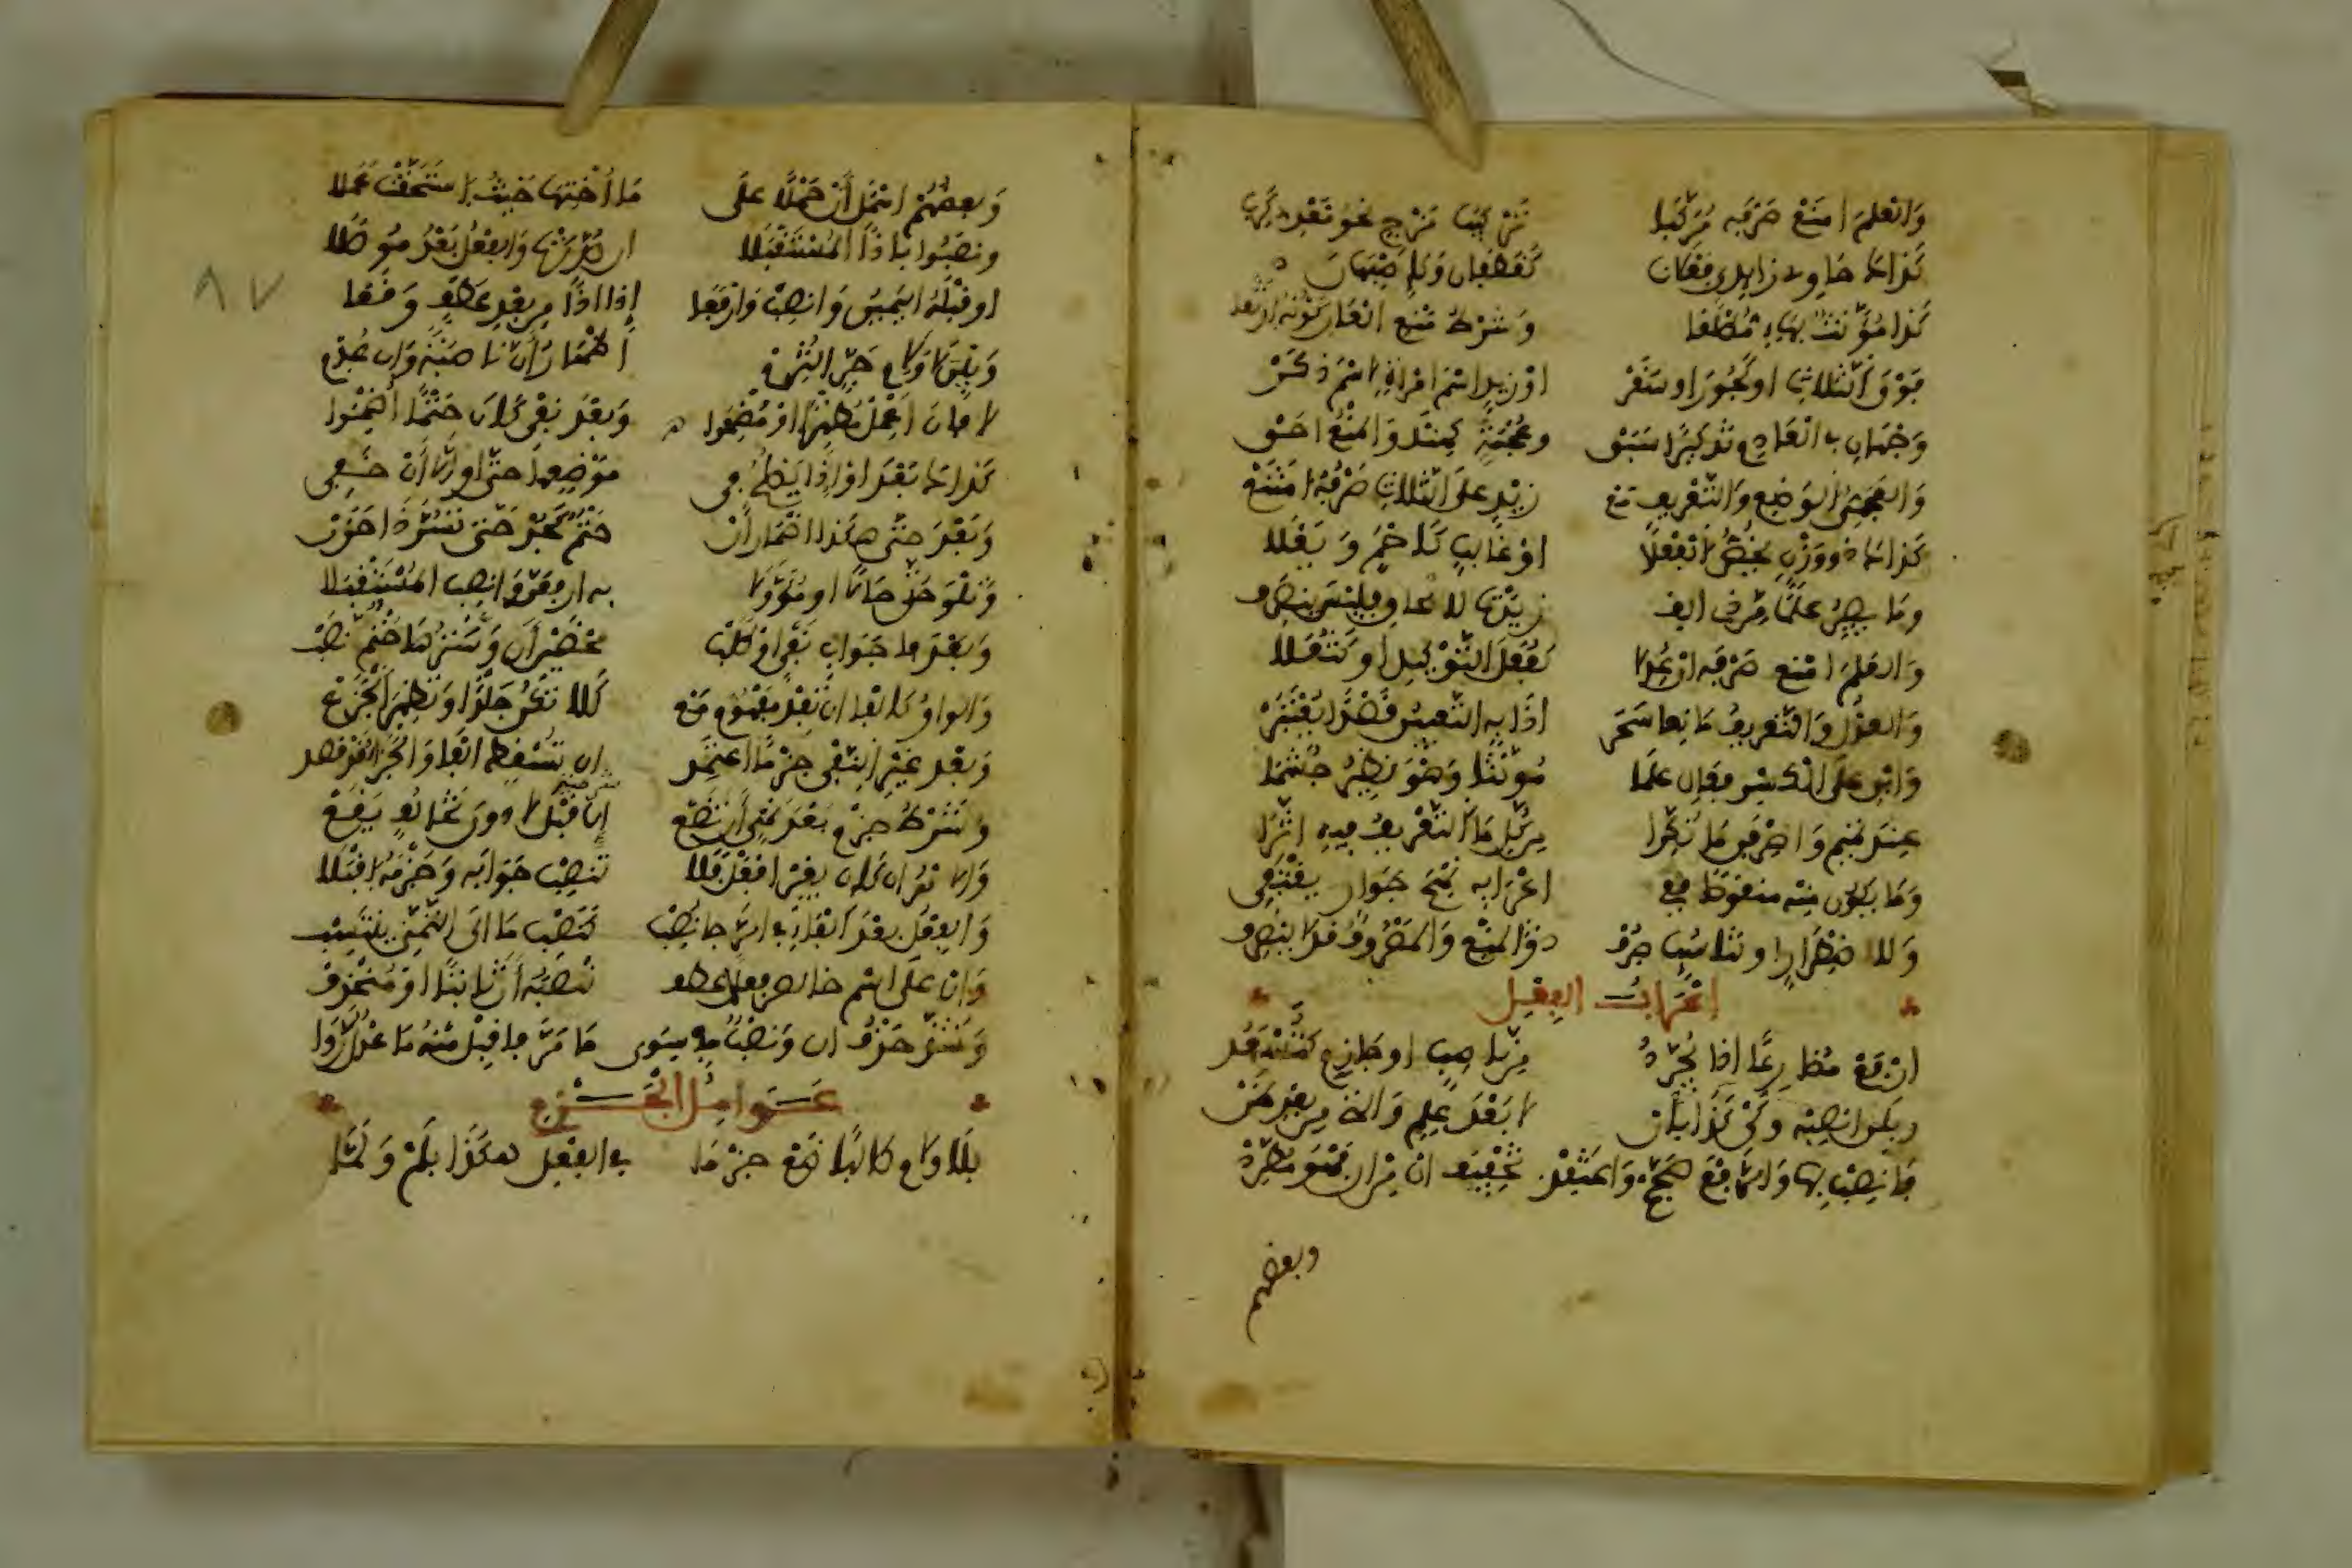 وَالعَلَمَ امْنَعْ صَرْفَه مُرَكَّبا تَرْكِيبَ مَزْجٍ نحوُ مَعْدِي كَرِبا
كَذَاكَ حَاوِي زَايِدَيْ فَعْلَانَ كَغَطَفَانَ وَكَإِصْبَهَانَ
كَذا مُؤَنَّثٌ بِهَاءٍ مُطْلَقا وَشَرْطُ مَنْعِ الْعَارِ كَوْنُهُ ارْتَقَى
فَوْقَ الثَّلَاثِ اوْ كَجُورَ اوْ سَقَرْ اوْ زَيْدٍ اسْمَ امْرَأةٍ لا اسْمَ ذَكَرْ
وَجْهَانِ في الْعَادِمِ تَذْكِيرًا سَبَقْ وعُجْمَةً كَهِنْدَ وَالْمَنْعُ احَقّ
وَالعَجَمِيُّ الوَضْعِ وَالتَّعْرِيفِ مَعْ زَيْدٍ عَلَى الثَّلاثِ صَرْفُهُ امْتَنَعْ
كَذَاكَ ذو وَزْنٍ يَخُصُّ الْفِعْلَا اوْ غَالِبٍ كَأَحْمَدٍ وَيَعْلَا
ومَا يَصِيرُ عَلَمًا مِن ذِي الِف زِيْدَتْ لِالْحَاقٍ فَلَيْسَ يَنْصَرِف
وَالعَلَمَ امْنَعْ صَرْفَه انْ عُدِلَا كَفُعَلِ التَّوْكِيدِ اوْ كَثُعَلا
وَالعَدْلُ وَالتَّعْرِيفُ مَانِعَا سَحَر اذَا بِهِ التَّعْيِينُ قَصْدًا يُعْتَبَرْ
وَابْنِ عَلَى الْكَسْرِ فَعَالِ عَلَمَا مُؤَنَّثًا وَهْوَ نَظِيرُ جُشَمَا
عِنْدَ تَمِيمٍ وَاصْرِفَنْ مَا نُكِّرَا مِن كُلِّ مَا التَّعْرِيفُ فِيهِ اثَّرَا
وَمَا يَكُونُ مِنْه مَنْقُوصًا فَفِي اعْرَابِهِ نَهْجَ جَوَارٍ يَقْتَفِي
وَلِاضْطِرَارٍ او تَنَاسُبٍ صُرِفْ ذُو الْمَنْعِ وَالْمَصْرُوفُ قَدْ لَا يَنْصَرِف
إعْرَابُ الفِعْلِ
ارْفَعْ مُضَارِعًا إذَا يُجَرَّدُ مِن نَاصِبٍ اوْ جَازِمٍ كَتَسْعَدُ
وَبِلَنِ انْصِبْه وَكَيْ كَذَا بِأَنْ لَا بَعْدَ عِلْمٍ وَالَّتِي مِن بَعْدِ ظَنّ
فَانْصِبْ بِهَا وَالرَّفْعَ صَحِّحْ وَاعْتَقِدْ تَخْفِيفَهَا مِنْ أنَّ فَهْوَ مُطَّرِدْ
وبعضهم
وَبعضُهُمْ اهْمَلَ أَنْ حَمْلًا عَلَى مَا أُخْتِهَا حَيْثُ اسْتَحَقَّتْ عَمَلا
ونَصَبُوا بِإذًا الْمُسْتَقْبَلَا ان صُدِّرَتْ وَالفِعْلُ بَعْدُ مُوصَلا
اوْ قَبْلَهُ اليَمِينُ وَانْصِبْ وَارْفَعَا إذا اذًا مِن بَعْدِ عَطْفٍ وَقَعَا
وَبَيْنَ لَا وَلَامِ جَرٍّ التُزِمْ اظْهَارُ أَنْ نَاصِبَةً وَان عُدِمْ
لا فَأَنَ اعْمِلْ مُظْهِرًا اوْ مُضْمِرَا وَبَعْدَ نَفْيِ كَانَ حَتْمًا أُضْمِرَا
كَذَاكَ بَعْدَ اوْ إِذَا يَصْلُحُ فِي مَوْضِعِهَا حَتَّى اوِ الَّا أَنْ خَفِي
وَبَعْدَ حَتَّى هَكَذَا اضْمَارُ أَنْ حَتْمٌ كَجُدْ حَتَّى تَسُرَّ ذَا حَزَنْ
وَتِلْوَ حَتَّى حَالًا او مُؤَوَّلَا بِهِ ارْفَعَنَّ وَانْصِبِ الْمُسْتَقْبَلَا
وَبَعْدَ فَا جَوَابِ نَفْيٍ اوْ طَلَبْ مَحْضَيْنِ أَنْ وَسَتْرُهَا حَتْمٌ نَصَبْ
وَالوَاوُ كَالْفَا ان تُفِدْ مَفْهُومَ مَعْ كَلَا تَكُنْ جَلْدًا وَتُظْهِرَ الْجَزَعْ
وَبَعْدَ غَيْرِ النَّفْيِ جَزْمًا اعْتَمِد ان تَسْقُطِ الْفَا وَالْجَزَاءُ قَدْ قُصِد
وَشَرْطُ جَزْمٍ بَعْدَ نَهْيٍ أَن تَضَع إن قَبْلَ لَا دونَ تَخَالُفٍ يَقَعْ
وَالامْرُ ان كَانَ بِغَيْرِ افْعَلْ فَلَا تَنْصِبْ جَوَابَه وَجَزْمَهُ اقْبَلَا
وَالفِعْلُ بَعْدَ الْفَاءِ في الرَّجَا نُصِبْ كَنَصْبِ مَا الَى التَّمَنِّي يَنْتَسِبْ
وَانْ عَلَى اسْمٍ خَالِصٍ فِعْلٌ عُطِف تَنْصِبُه أَنْ ثَابِتًا اوْ مُنْحَذِفْ
وَشَذَّ حَذْفُ ان وَنَصْبٌ في سِوَى مَا مَرَّ فاقْبَلْ مِنْهُ مَا عَدْلٌ رَوَا
عَوَامِلُ الْجَزْمِ
بِلَا وَلَامٍ طَالِبًا ضَعْ جَزْمَا في الفِعْلِ هَكَذَا بِلَمْ وَلَمَّا
٨٧